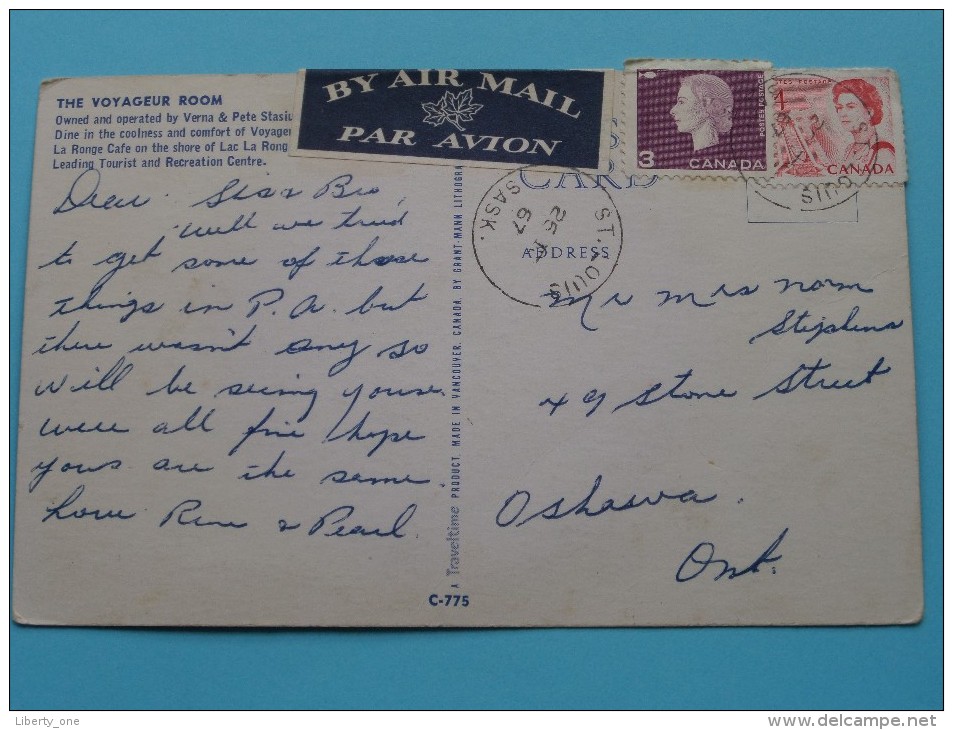 THE VOYAGEUR ROOM
Owned and operated by Verna & Pete Stasiu
Dine in the coolness and comfort of Voyager
La Ronge Cafe on the shore of Lac La Rong
Leading Tourist and Recreation Centre.
BY AIR MAIL
PAR AVION
3
CANADA
POSTES POSTAGE
4
POSTES POSTAGE
CANADA
ST. LOUIS
ST. LOUIS
25
67
SASK.
CARD
ADDRESS
Dear Sis & Bro
Well we tried
to get some of those
things in P.A. but
there wasn't any so
will be seeing youse.
were all fine hope
yous are the same.
Love Rene & Pearl
Mr Mrs Norm
Stephens
49 Stone Street
Oshawa.
Ont.
A Traveltime PRODUCT, MADE IN VANCOUVER, CANADA, BY GRANT-MANN LITHOGR
C-775
Liberty_one
www.delcampe.net